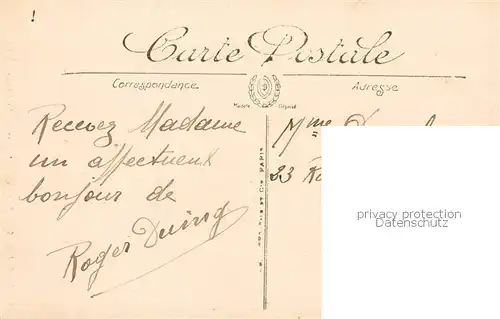 !
Carte Postale
Correspondance
Adresse
Modèle Déposé
Recevez Madame
un affectueux
bonjour de
Roger
Mme
33
privacy protection
Datenschutz